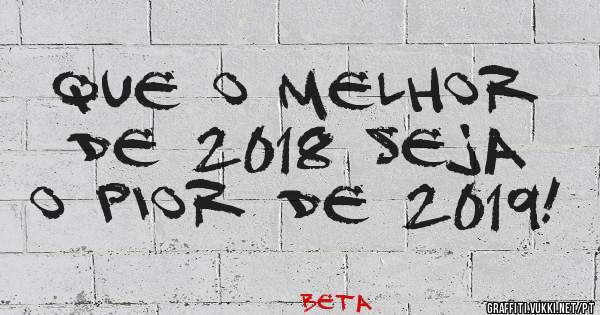 QUE O MELHOR
DE 2018 SEJA
O PIOR DE 2019!
BETA
GRAFFITI.VUKKI.NET/PT